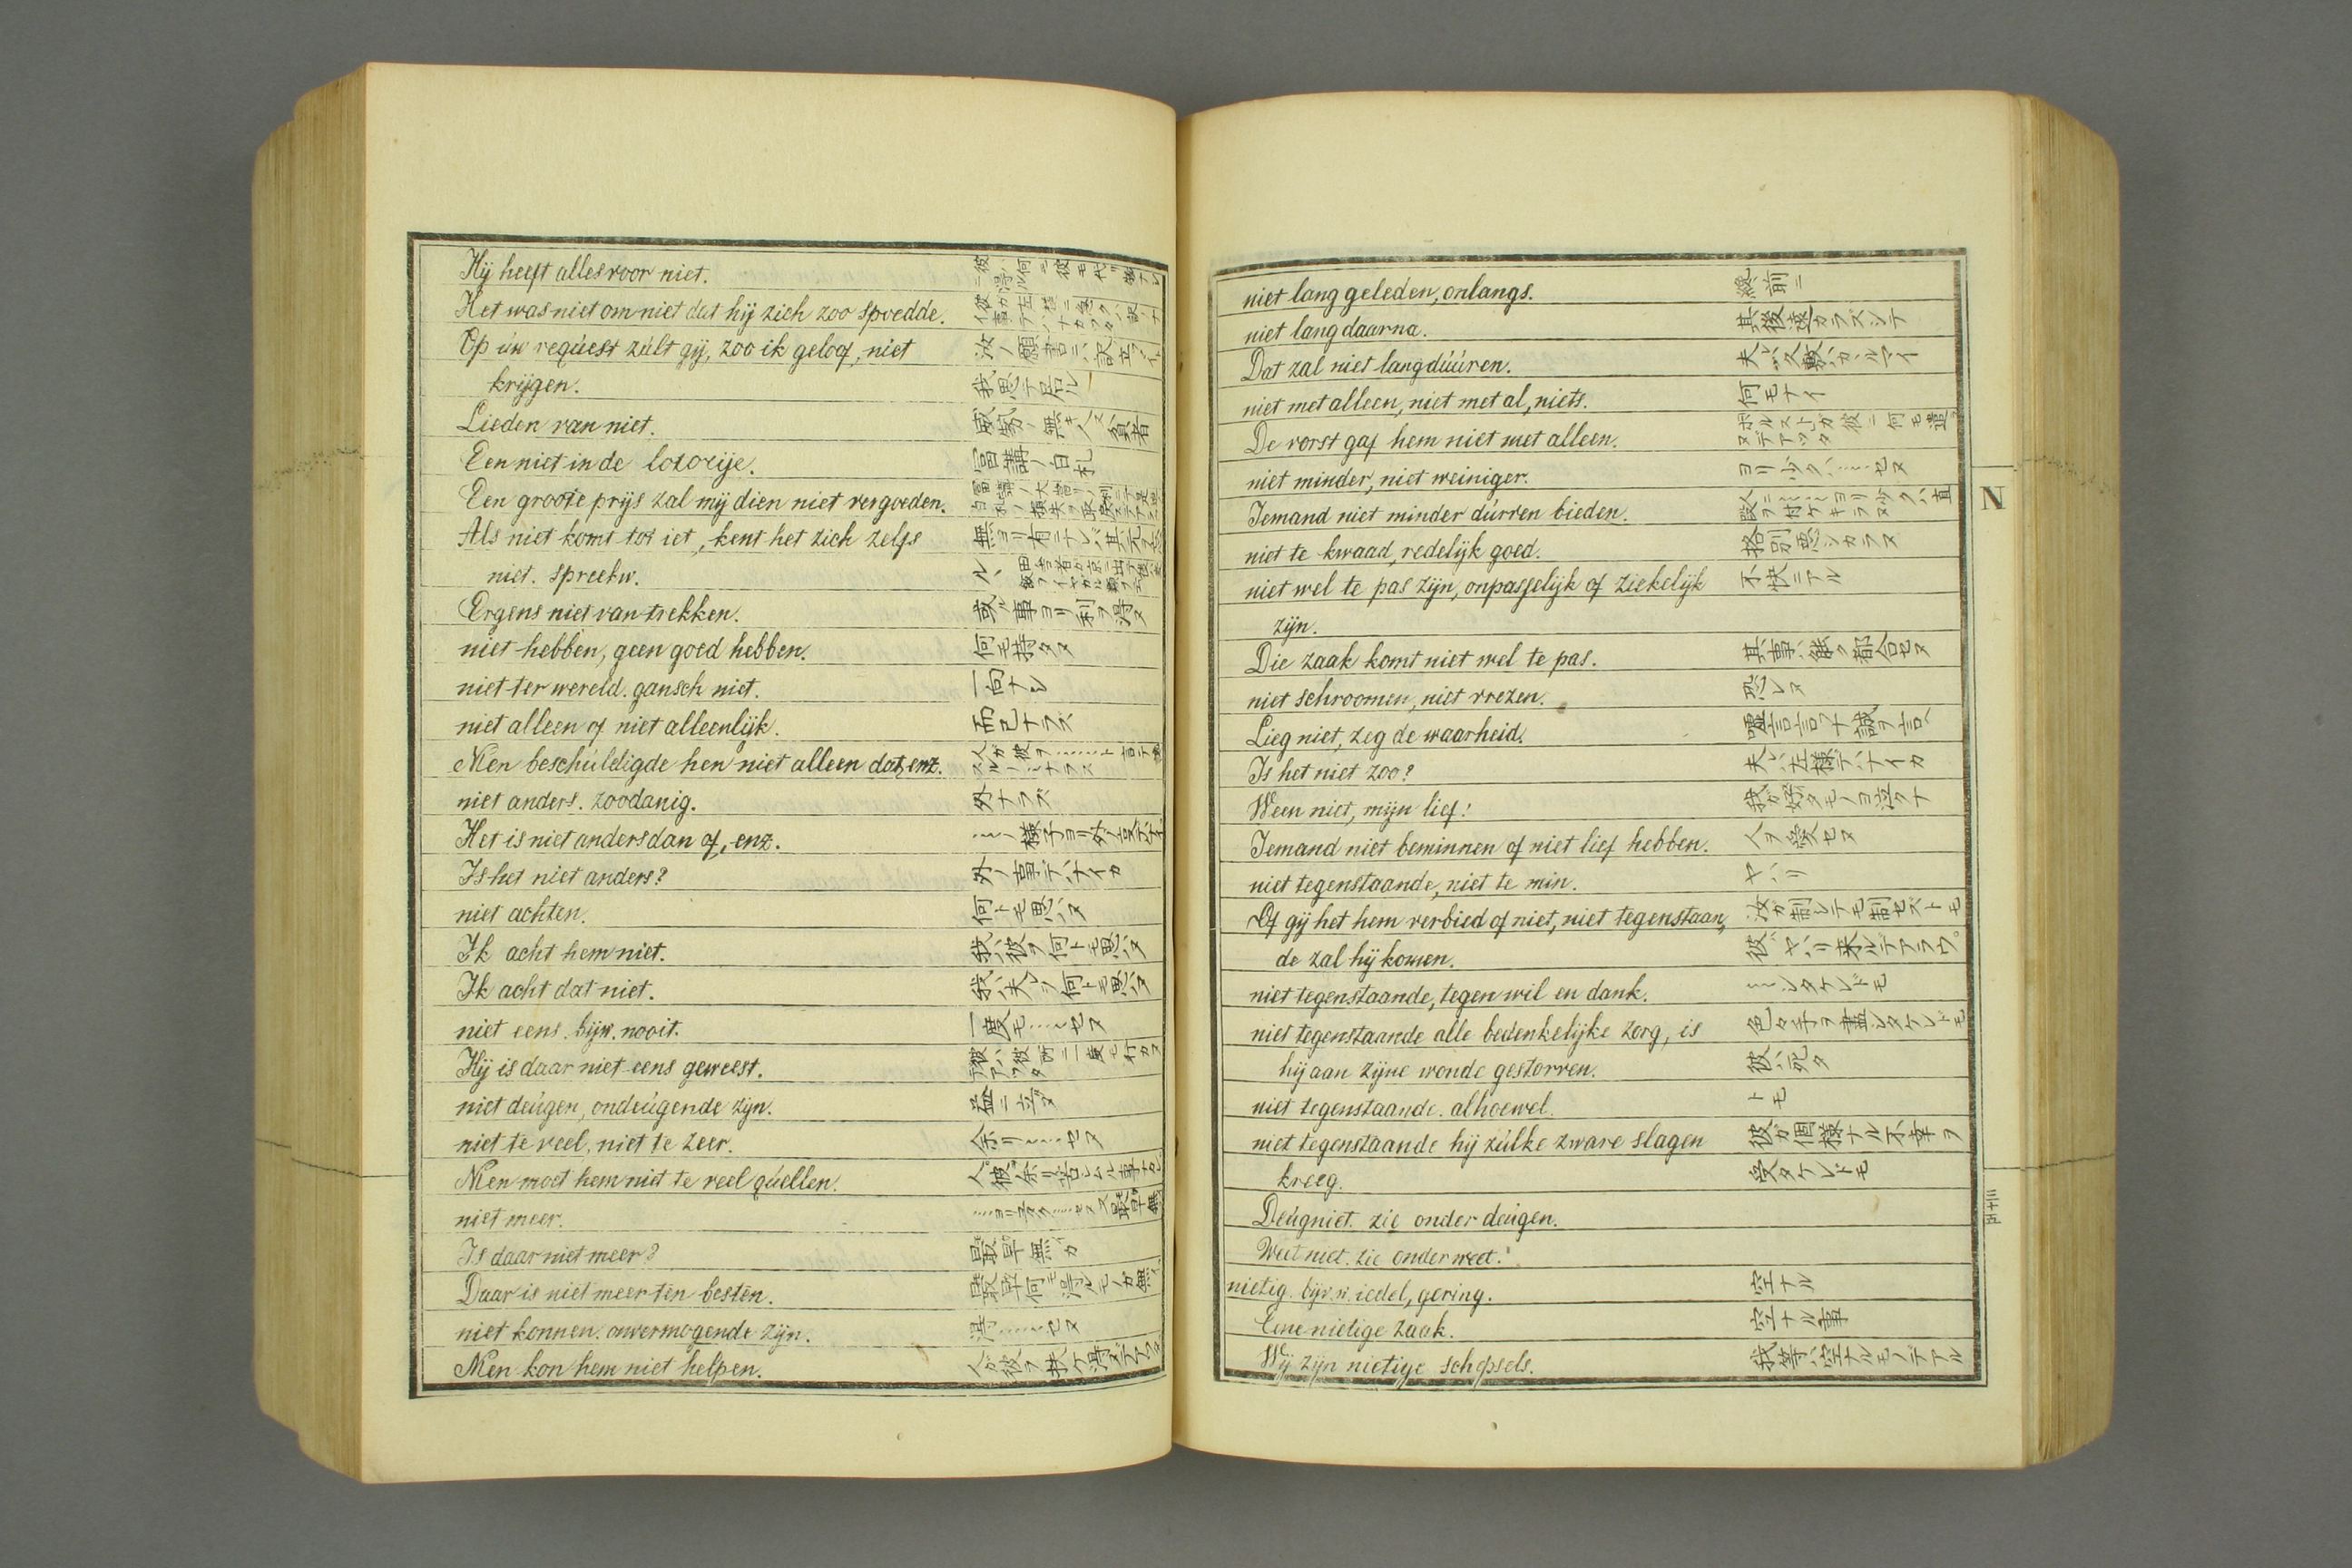 Hij heeft alles voor niet.
Het was niet om niet dat hij zich zoo spoedde.
Op úw reqúest zúlt gij, zoo ik geloof, niet
krijgen.
我思テ居ル
Lieden van niet.
Een niet in de loterije. 富講ノ白札
Een groote prijs zal mij dien niet vergoeden.
Als niet komt tot iet, kent het zich zelfs
niet. spreekw.
Ergens niet van trekken. 或ル事ヨリ利ヲ得ヌ
niet hebben, geen goed hebben. 何モ持タヌ
niet ter wereld. gansch niet. 一向ナシ
niet alleen of niet alleenlijk. 而已ナラズ
Men beschúldigde hen niet alleen dat, enz.
niet anders. zoodanig. 外ナラズ
Het is niet anders dan of, enz.
Is het niet anders? 外ノ事デハナイカ
niet achten. 何トモ思ハヌ
Ik acht hem niet. 我ハ彼ヲ何トモ思ハヌ
Ik acht dat niet. 我ハ夫レヲ何トモ思ハヌ
niet eens. bijw. nooit. 一度モ……セヌ
Hij is daar niet eens geweest.
niet deúgen, ondeúgende zijn. 益ニ立ヌ
niet te veel, niet te zeer. 余リ……セヌ
Men moet hem niet te veel qúellen.
niet meer.
Is daar niet meer? 最早無イカ
Daar is niet meer ten besten.
niet konnen. onvermogende zijn. 得……セヌ
Men kon hem niet helpen.
niet lang geleden, onlangs.
niet lang daarna. 其後遠カラズシテ
Dat zal niet lang dúúren.
niet met alleen, niet met al, niets. 何モナイ
De vorst gaf hem niet met alleen.
niet minder, niet weiniger. ヨリ少クハ……セヌ
Iemand niet minder dúrven bieden.
niet te kwaad, redelijk goed. 格別悪シカラヌ
niet wel te pas zijn, onpasselijk of ziekelijk 不快ニアル
zijn.
Die zaak komt niet wel te pas. 其事ハ能ク都合セヌ
niet schroomen, niet vrezen. 恐レヌ
Lieg niet, zeg de waarheid.
Is het niet zoo? 夫レハ左様デハナイカ
Ween niet, mijn lief!
Iemand niet beminnen of niet lief hebben. 人ヲ愛セヌ
niet tegenstaande, niet te min. ヤハリ
Of gij het hem verbied of niet, niet tegenstaan„ 汝ガ制シテモ制セズトモ
de zal hij komen. 彼ハヤハリ来ルデアラウ。
niet tegenstaande, tegen wil en dank. ……シタケレドモ
niet tegenstaande alle bedenkelijke zorg, is 色々手ヲ盡シタケレドモ
hij aan zijne wonde gestorven. 彼ハ死タ
niet tegenstaande. alhoewel. トモ
niet tegenstaande hij zúlke zware slagen 彼ガ個様ナル不幸ヲ
kreeg. 受タケレドモ
Deúgniet. zie onder deúgen.
Weet niet. zie onder weet.
nietig. bijv. n. iedel, gering. 空ナル
Eene nietige zaak. 空ナル事
Wij zijn nietige schepsels. 我等ハ空ナルモノデアル
N